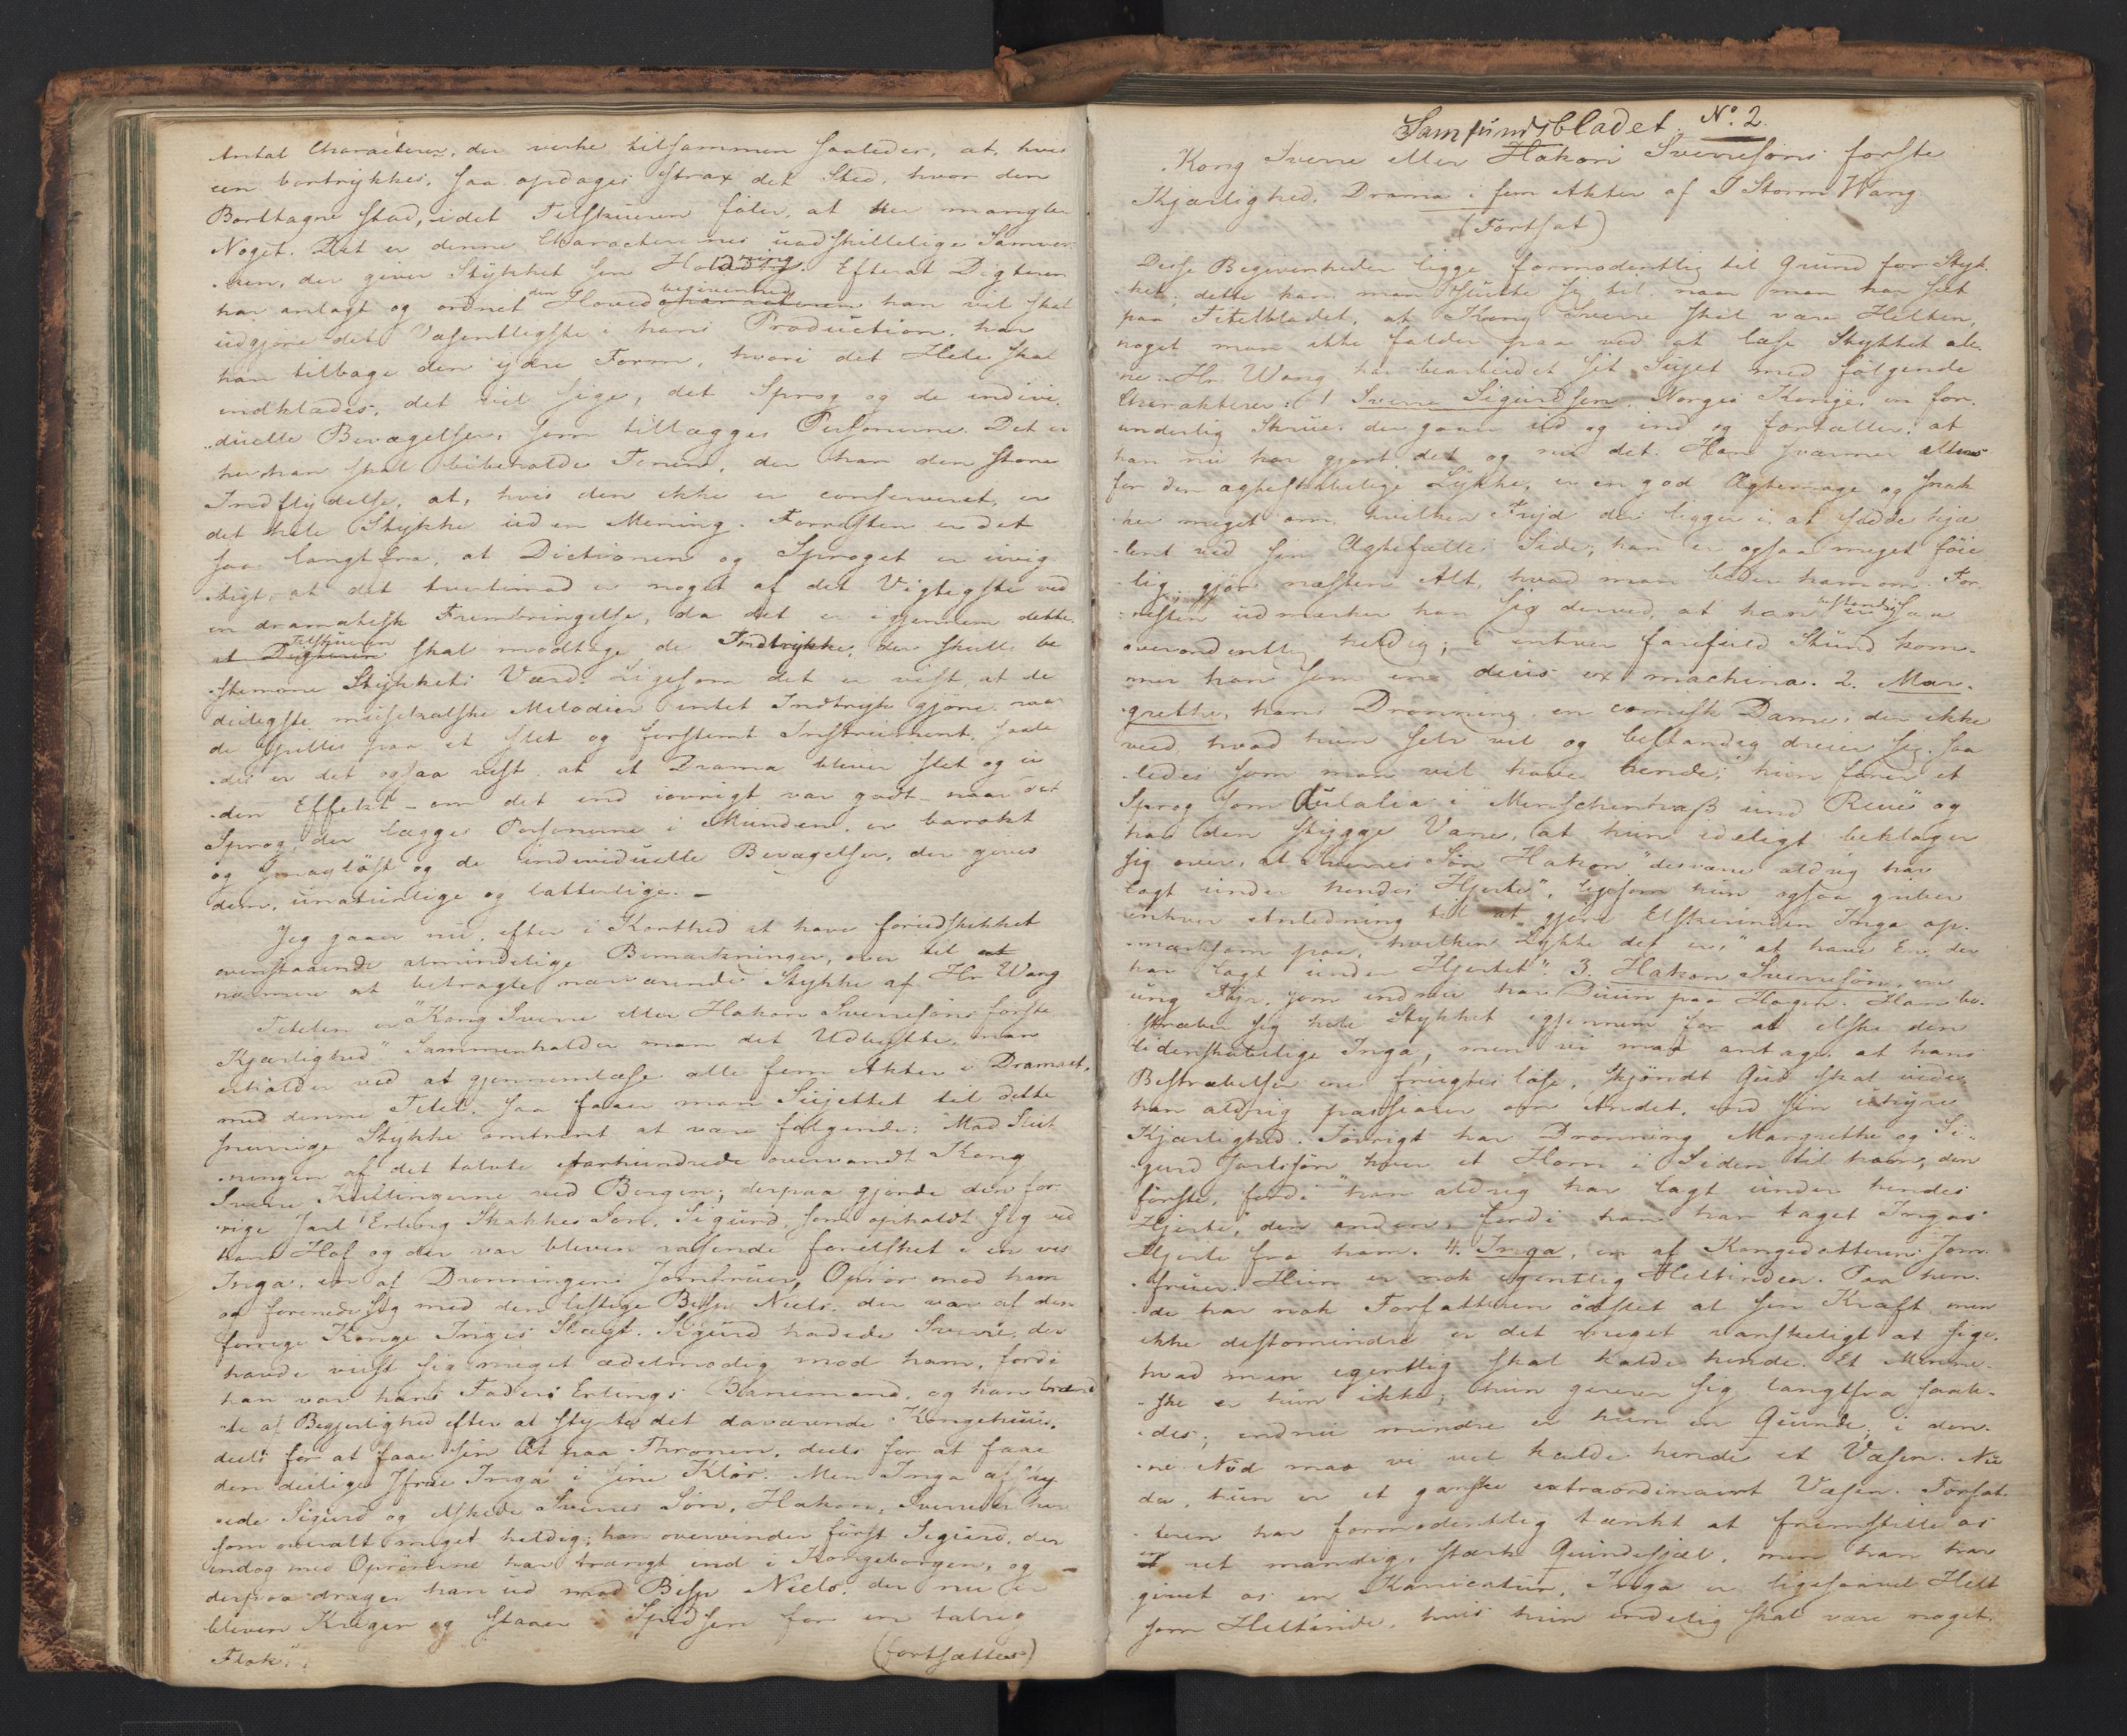 Antal Characterer, der virke tilsammen saaledes, at, hvis
een bortrykkes, saa opdages strax det Sted, hvor den
Borttagne stod, idet Tilskueren føler, at her mangler
Noget. Det er denne Characterernes uadskillelige Samvir-
ken, der giver Stykket sin Holdning. Efterat Digteren
har anlagt og ordnet den Hovedbegivenhed han vil skal
udgjøre det Væsentligste i hans Production, har
han tilbage den ydre Form, hvori det Hele skal
indklædes, det vil sige, det Sprog og de indivi-
duelle Bevægelser, som tillægges Personerne. Det er
her han skal bibeholde Tonen, der har den store
Indflydelse, at, hvis den ikke er conserveret, er
det hele Stykke uden Mening. Forresten er det
saa langtfra, at Dictionen og Sproget er uvig-
tigt, at det tvertimod er noget af det Vigtigste ved
en dramatisk Frembringelse, da det er igjennem dette,
at Digteren Tilskueren skal modtage de Indtrykke, der skulle be-
stemme Stykkets Værd. Ligesom det er vist, at de
deiligste musikalske Melodier intet Indtryk gjøre, naar
de spilles paa et slet og forstemt Instrument, saale-
des er det ogsaa vist, at et Drama bliver slet og u-
den Effekt – om det end iøvrigt var godt – naar det
Sprog, der lægges Personerne i Munden, er barokt
og smagløst og de individuelle Bevægelser, der gives
dem, unaturlige og latterlige. –
Jeg gaaer nu, efter i Korthed at have forudskikket
ovenstaaende almindelige Bemærkninger, over til at
nærmere at betragte nærværende Stykke af Hr Wang
Titelen er "Kong Sverre eller Hakon Sverresøns første
Kjærlighed". Sammenholder man det Udbytte, man
erholder ved at gjennemlæse alle fem Akter i Dramaet,
med denne Titel, saa faaer man Süjettet til dette
snurrige Stykke omtrent at være følgende: "Mod Slut-
ningen af det tolvte Aarhundrede overvandt Kong
Sverre Kuflingerne ved Bergen; derpaa gjorde den for-
rige Jarl Erling Skakkes Søn, Sigurd, som opholdt sig ved
hans Hof og der var bleven rasende forelsket i en vis
Inga, en af Dronningens Jomfruer, Oprør mod ham
og forenede sig med den listige Bisp Niels, der var af den
forrige Konge Inges Slægt. Sigurd hadede Sverre, der
havde viist sig meget ædelmodig mod ham, fordi
han var hans Faders Erlings Banemand, og han brænd-
te af Begjerlighed efter at styrte det daværende Kongehuus,
deels for at faae sin Æt paa Thronen, deels for at faae
den deilige Jfrue Inga i sine Klør. Men Inga afsky-
ede Sigurd og elskede Sverres Søn, Hakon. Sverre er her
som overalt meget heldig; han overvinder først Sigurd, der
endog med Oprørerne har trængt ind i Kongeborgen, og –
derpaa drager han ud mod Bisp Niels, der nu er
bleven Kriger og staaer i Spidsen for en talrig
Flok".
(fortsættes)
Samfundsbladet. No. 2.
Kong Sverre eller Hakon Sverresøns første
Kjærlighed. Drama i fem Akter af J Storm Wang
(Fortsat)
Disse Begivenheder ligge formodentlig til Grund for Styk-
ket; dette kan man slutte sig til naar man har seet
paa Titelbladet, at Kong Sverre skal være Helten,
noget man ikke falder paa ved at læse Stykket ale-
ne. Hr. Wang har bearbeidet sit Süjet med følgende
Charakterer: 1. Sverre Sigurdsen, Norges Konge, en for-
underlig Skrue, der gaaer ud og ind og fortæller, at
han nu har gjort det og nu det. Han sværmer
for den ægteskabelige Lykke, er en god Ægtemage og snak-
ker meget om, hvilken Fryd der ligger i, at sidde hjæ-
lent ved sin Ægtefælles Side; han er ogsaa meget føie-
lig, gjør næsten Alt, hvad man beder ham om. For-
resten udmærker han sig derved, at han er saa
overordentlig heldig; i enhver farefuld Stund kom-
mer han som en deus ex machina. 2. Mar-
grethe, hans Dronning, en comisk Dame, der ikke
veed, hvad hun selv vil og bestandig dreier sig saa-
ledes som man vil have hende; hun fører et
Sprog som Eulalia i "Menschenhaß und Reue" og
har den stygge Vane, at hun ideligt beklager
sig over, at Sverres Søn Hakon "desværre aldrig har
lagt under hendes Hjerte", ligesom hun ogsaa griber
enhver Anledning til at gjøre Elskerinden Inga op-
mærksom paa, hvilken Lykke det er, "at have En, der
har lagt under Hjertet". 3. Hakon Sverresøn, en
ung Fyr, som endnu har Duun paa Hagen. Han be-
stræber sig hele Stykket igjennem for at elske den
lidenskabelige Inga, men vi maa antage, at hans
Bestræbelser ere frugtesløse, skjøndt Gud skal vide,
han aldrig passiarer om Andet, end sin uhyre
Kjærlighed. Iøvrigt har Dronning Margrethe og Si-
gurd Jarlssøn hver et Horn i Siden til ham, den
første, fordi "han aldrig har lagt under hendes
Hjerte", den anden, fordi han har taget Ingas
Hjerte fra ham. 4. Inga, en af Kongedatterens Jom-
fruer. Hun er nok egentlig Heltinden. Paa hen-
de har nok Forfatteren ødslet al sin Kraft, men
ikke destomindre er det meget vanskeligt at sige,
hvad man egentlig skal kalde hende. Et Menne-
ske er hun ikke; hun gerer sig langtfra saale-
des; endnu mindre er hun en Qvinde; i den-
ne Nød maa vi vel kalde hende et Væsen. Nu
da, hun er et ganske extraordinairt Væsen. Forfat-
teren har formodentlig tænkt at fremstille os
en ret mandig, stærk Qvindesjæl, men han har
givet os en Karricatur. Inga er ligesaavel Helt
som Heltinde, hvis hun endelig skal være noget.